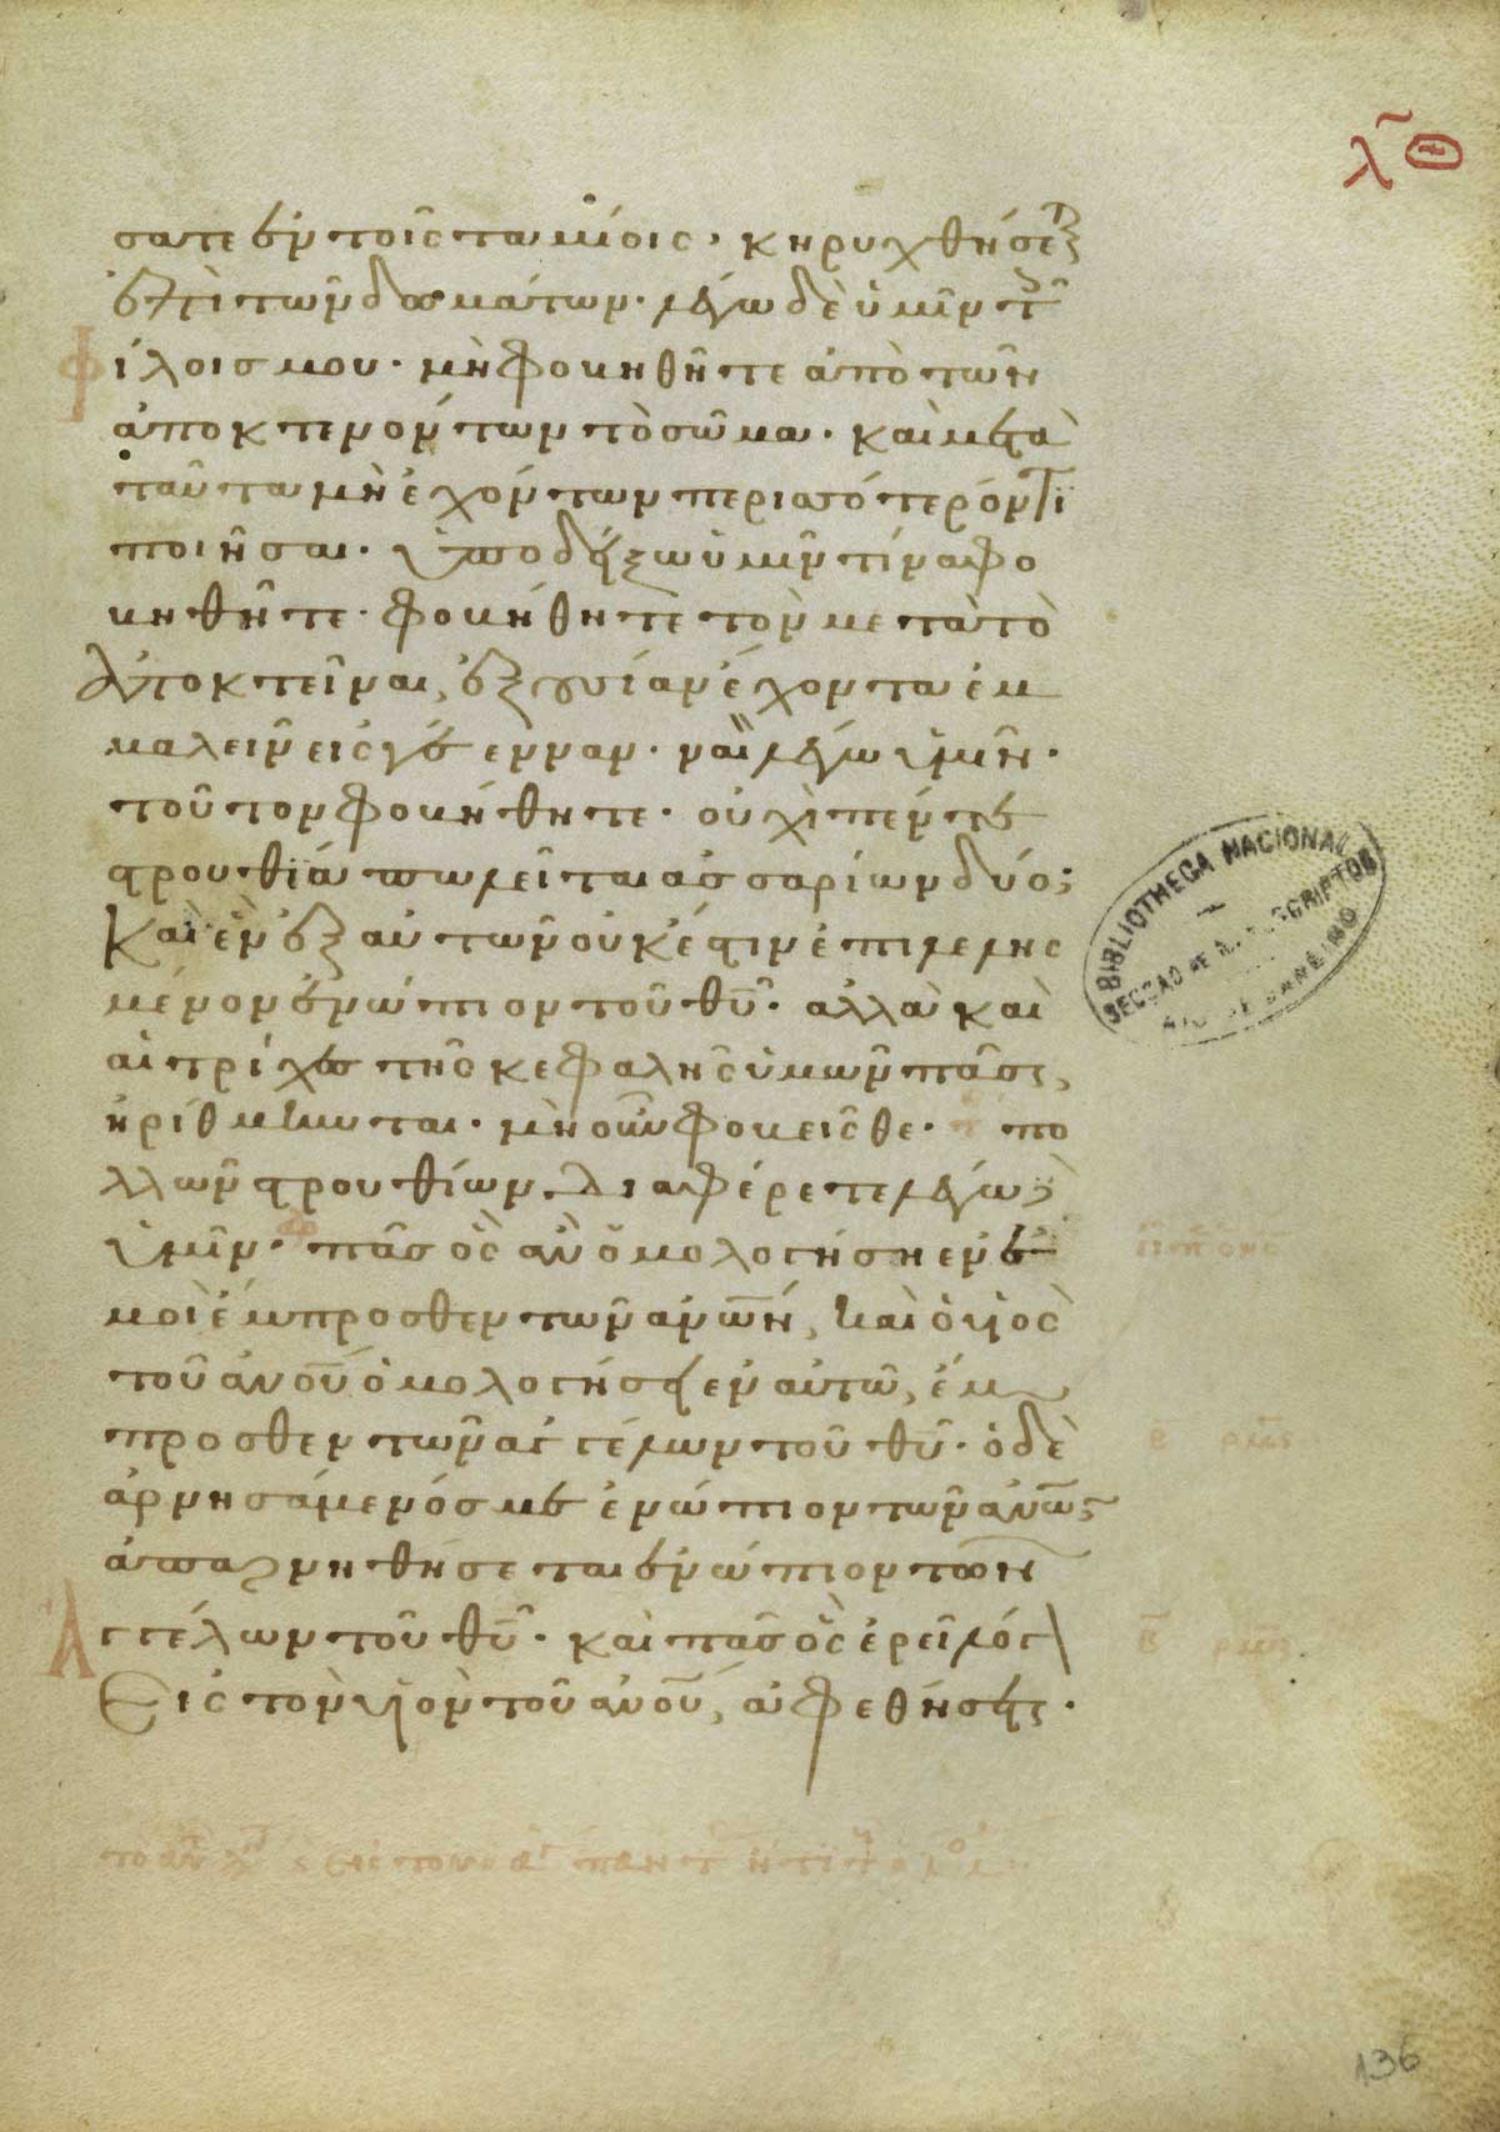 λθ
σατε ἐν τοῖς ταμείοις· κηρυχθήσετ(αι)
ἐπὶ τῶν δωμάτων· λέγω δὲ ὑμῖν τοῖς
φίλοισ μου· μὴ φοβηθῆτε ἀπὸ τῶν
ἀποκτενόντων τὸ σῶμα· καὶ μετὰ
ταῦτα μὴ ἐχόντων περισσότερόν τι
ποιῆσαι· ὑποδείξω ὑμῖν τίνα φο
βηθῆτε· φοβήθητε τὸν μετὰ τὸ
ἀποκτεῖναι, ἐξουσίαν ἔχοντα ἐμ
βαλεῖν εἰς γέενναν· ναὶ λέγω ὑμῖν·
τοῦτον φοβήθητε· οὐχὶ πέντε
στρουθία πωλεῖται ἀσσαρίων δύο;
Καὶ ἓν ἐξ αὐτῶν οὐκ ἔστιν ἐπιλελησ
μένον ἐνώπιον τοῦ θῡ· ἀλλὰ καὶ
αἱ τρίχες τῆς κεφαλῆς ὑμῶν πᾶσαι,
ἠρίθμηνται· μὴ οὖν φοβεῖσθε· πο
λλῶν στρουθίων διαφέρετε λέγω δὲ
ὑμῖν· πᾶσ ὃς ἂν ὁμολογήση ἐν ἐ
μοὶ ἔμπροσθεν τῶν ἀν̅ω̅ν, καὶ ὁ υἱὸς
τοῦ ἀν̅ο̅υ̅ ὁμολογήσει ἐν αὐτῶ, ἔμ
προσθεν τῶν ἀγγέλων τοῦ θῡ· ὁ δὲ
ἀρνησάμενόσ με ἐνώπιον τῶν ἀν̅ω̅ν
ἀπαρνηθήσεται ἐνώπιον τῶν
ἀγγέλων τοῦ θῡ· καὶ πᾶσ ὃς ἐρεῖ λόγον
Εἰς τὸν υἱὸν τοῦ ἀν̅ο̅υ̅, ἀφεθήσεται·
BIBLIOTHECA NACIONAL
SECÇÃO DE MANUSCRIPTOS
RIO DE JANEIRO
136